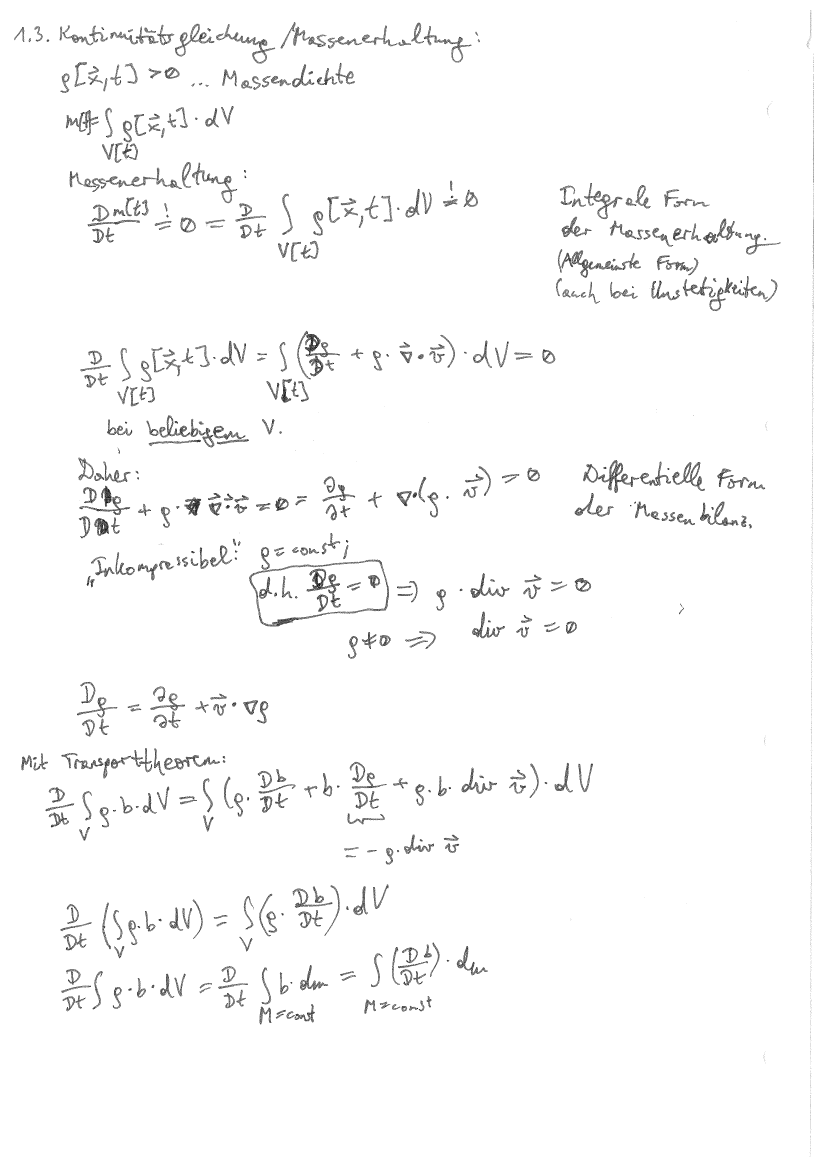 1.3. Kontinuitätsgleichung/Massenerhaltung:
ρ[x⃗,t] > 0 ... Massendichte
m[t] = ∫_{V[t]} ρ[x⃗,t] · dV
Massenerhaltung:
Dm[t]/Dt =! 0 = D/Dt ∫_{V[t]} ρ[x⃗,t] · dV =! 0
Integrale Form
der Massenerhaltung.
(Allgemeinste Form)
(auch bei Unstetigkeiten)
D/Dt ∫_{V[t]} ρ[x⃗,t] · dV = ∫_{V[t]} (Dρ/Dt + ρ · ∇⃗ · v⃗) · dV = 0
bei beliebigem V.
Daher:
Dρ/Dt + ρ · ∇⃗ · v⃗ = 0 = ∂ρ/∂t + ∇ · (ρ · v⃗) = 0
Differentielle Form
der Massenbilanz.
„Inkompressibel": ρ = const;
d.h. Dρ/Dt = 0 ⇒ ρ · div v⃗ = 0
ρ ≠ 0 ⇒ div v⃗ = 0
Dρ/Dt = ∂ρ/∂t + v⃗ · ∇ρ
Mit Transporttheorem:
D/Dt ∫_V ρ · b · dV = ∫_V (ρ · Db/Dt + b · Dρ/Dt + ρ · b · div v⃗) · dV
= − ρ · div v⃗
D/Dt (∫_V ρ · b · dV) = ∫_V (ρ · Db/Dt) · dV
D/Dt ∫ ρ · b · dV = D/Dt ∫_{M=const} b · dm = ∫_{M=const} (Db/Dt) · dm